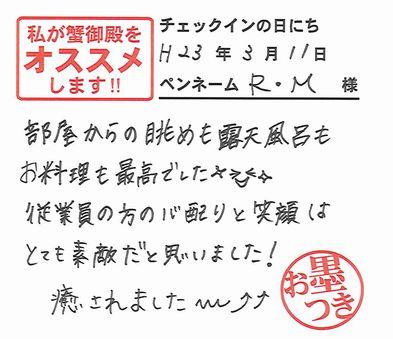 私が蟹御殿を
オススメ
します!!
チェックインの日にち
H23年3月11日
ペンネーム R・M 様
部屋からの眺めも露天風呂も
お料理も最高でした
従業員の方の心配りと笑顔は
とても素敵だと思いました!
癒されました〰↑↑
お墨つき